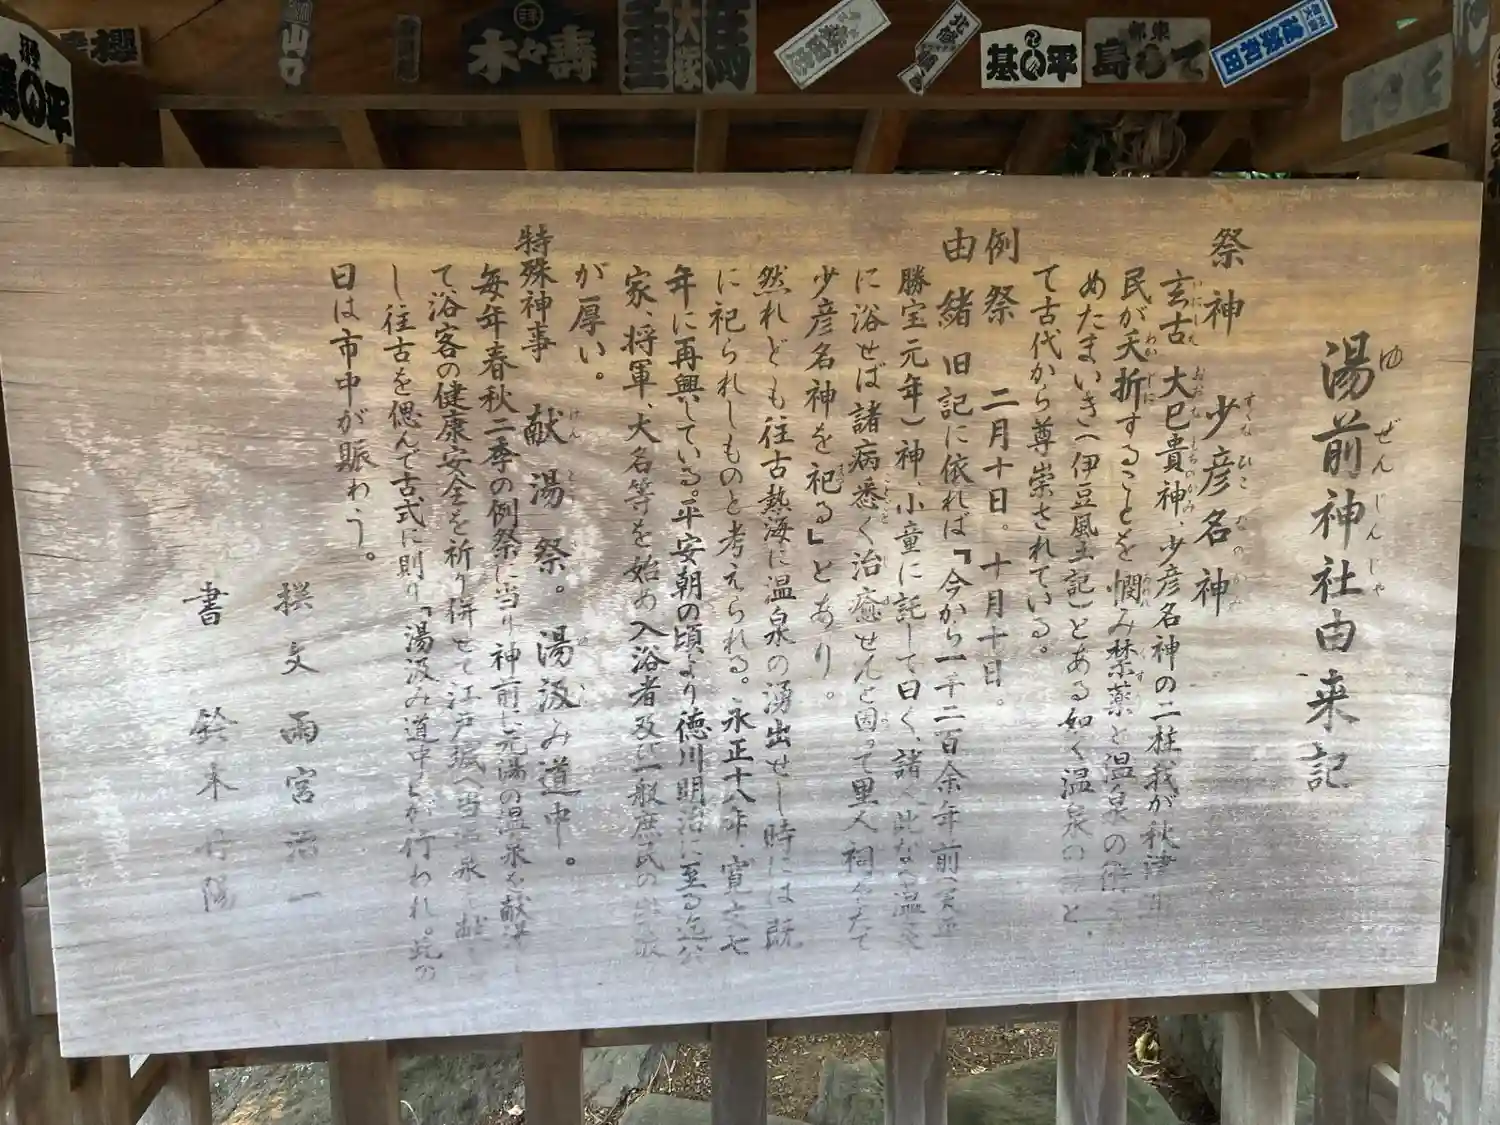 湯前神社由来記
ゆぜんじんしゃ
祭神 少彦名神
すくなひこなのかみ
玄古大巳貴神、少彦名神の二柱我が秋津
民が夭折することを憫み禁薬と温泉の術
めたまいき(伊豆風土記)とある如く温泉の と、
て古代から尊崇されている。
例祭 二月十日。十月十日。
由緒 旧記に依れば「今から一千二百余年前
勝宝元年)神、小童に託して曰く、諸 此な 温
に浴せば諸病悉く治癒せんと因って里人祠 たて
少彦名神を祀る」とあり。
然れども往古熱海に温泉の湧出せし時には既
に祀られしものと考えられる。永正十八年、寛文七
年に再興している。平安朝の頃より徳川明治に至る迄公
家、将軍、大名等を始め入浴者及び一般庶民の
が厚い。
特殊神事 献湯祭。湯汲み道中。
毎年春秋二季の例祭に当り神前に元湯の温泉を献
て浴客の健康安全を祈り併せて江戸城へ当温泉
し往古を偲んで古式に則り「湯汲み道中」が行われ。此の
日は市中が賑わう。
撰文 雨宮治一
書 鈴木
平四基
東都
大塚
寿々木